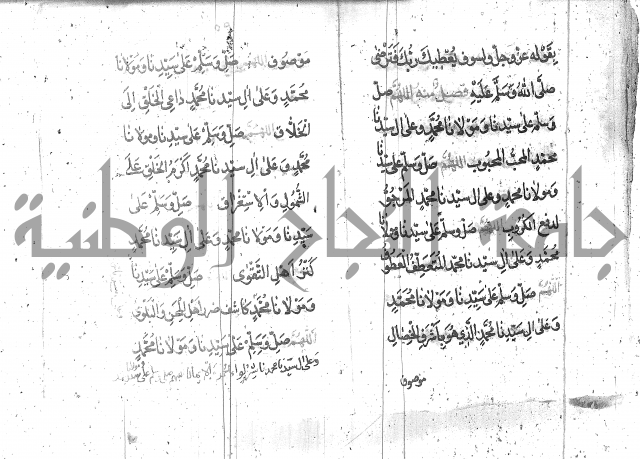 بقوله عز وجل ولسوف يعطيك ربك فترضى
صلى الله وسلم عليه فصيل منه اللهم صل
وسلم على سيدنا ومولانا محمد وعلى ال سيدنا
محمد المحب المحبوب اللهم صل وسلم على سيدنا
ومولانا محمد وعلى ال سيدنا محمد
لدفع الكروب اللهم صل وسلم على سيدنا ومولانا
محمد وعلى ال سيدنا محمد
اللهم صل وسلم على سيدنا ومولانا محمد
وعلى ال سيدنا محمد الذي هو باشرف الخصال
موصوف
موصوف اللهم صل وسلم على سيدنا ومولانا
محمد وعلى ال سيدنا محمد داعي الخلق الى
الخلاق اللهم صل وسلم على سيدنا ومولانا
محمد وعلى ال سيدنا محمد اكرم الخلق على
الشمول والاستغراق صل وسلم على
سيدنا ومولانا محمد وعلى ال سيدنا محمد
كنز اهل التقوى صل وسلم على سيدنا
ومولانا محمد كاشف ضر اهل المحن والبلوى
اللهم صل وسلم على سيدنا ومولانا محمد
وعلى ال سيدنا محمد
جامعة النجاح الوطنية